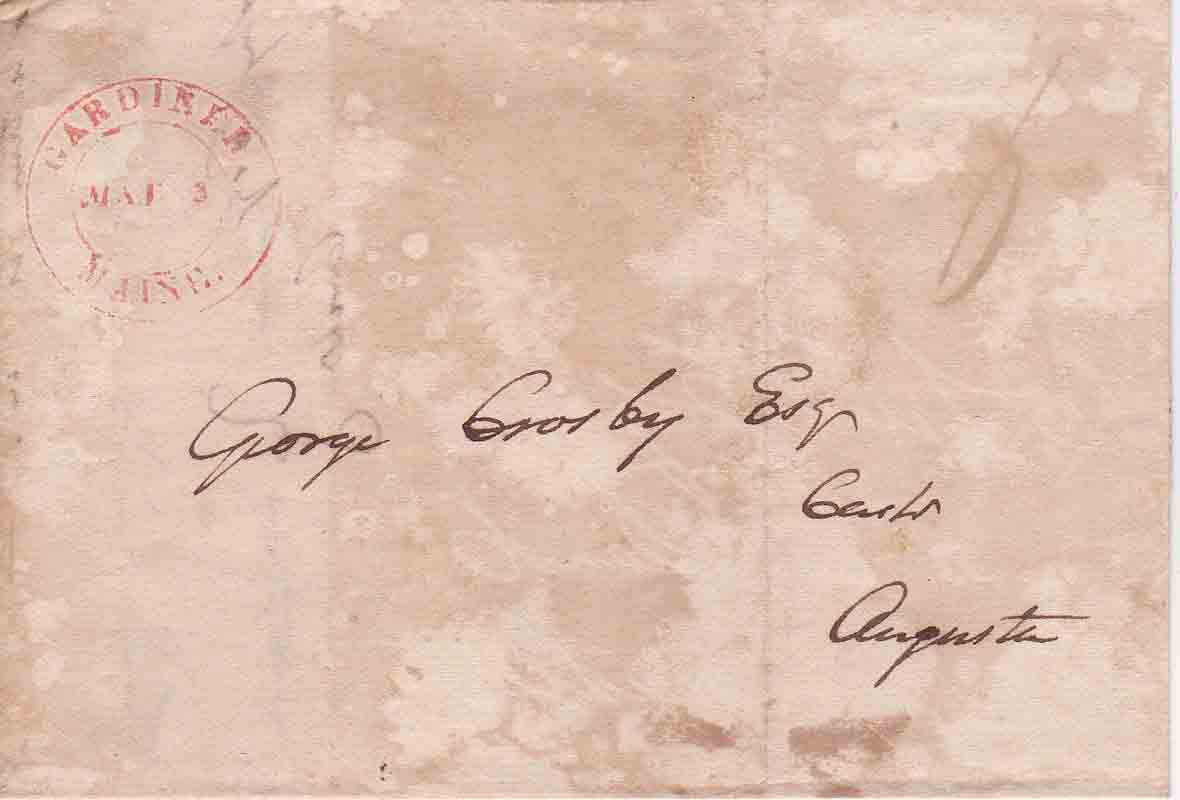 GARDINER
MAY 3
MAINE.
George Crosby Esq
Augusta